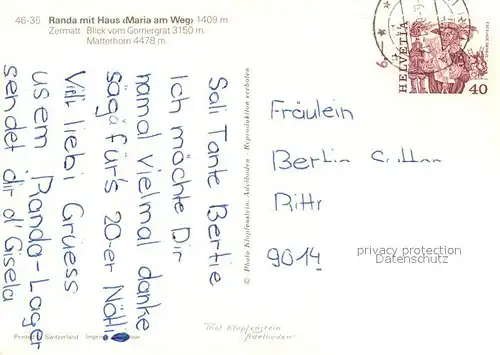 46-35 Randa mit Haus ‹Maria am Weg› 1409 m
Zermatt Blick vom Gornergrat 3150 m.
Matterhorn 4478 m.
Sali Tante Bertie
Ich möchte Dir
namal vielmal danke
säg fürs 20-er Nötli!
Vili liebi Grüess
usem Randa-Lager
sendet dir d'Gisela
© Photo Klopfenstein, Adelboden - Reproduktion verboten
HELVETIA
40
6.—
Fräulein
9014
privacy protection
Datenschutz
Switzerland
Thol Klopfenstein
Adelboden